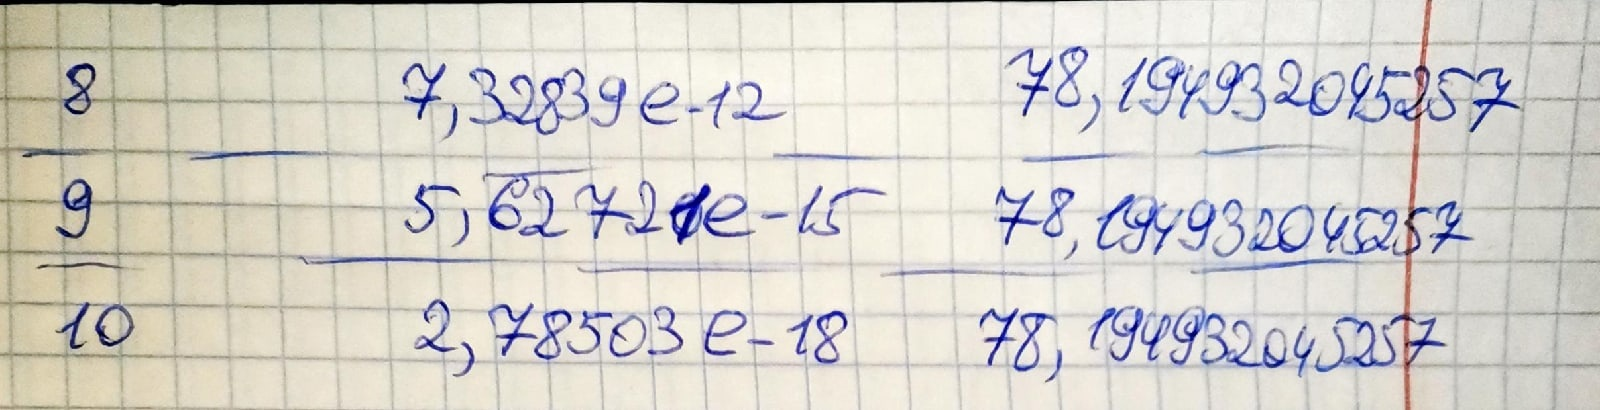 8 7,32839e-12 78,194932045257
9 5,627721e-15 78,194932045257
10 2,78503e-18 78,194932045257